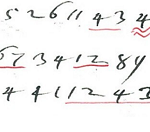 5 2 6 11 4 3 4
6 7 3 4 12 8 4
4 4 1 12 4 3